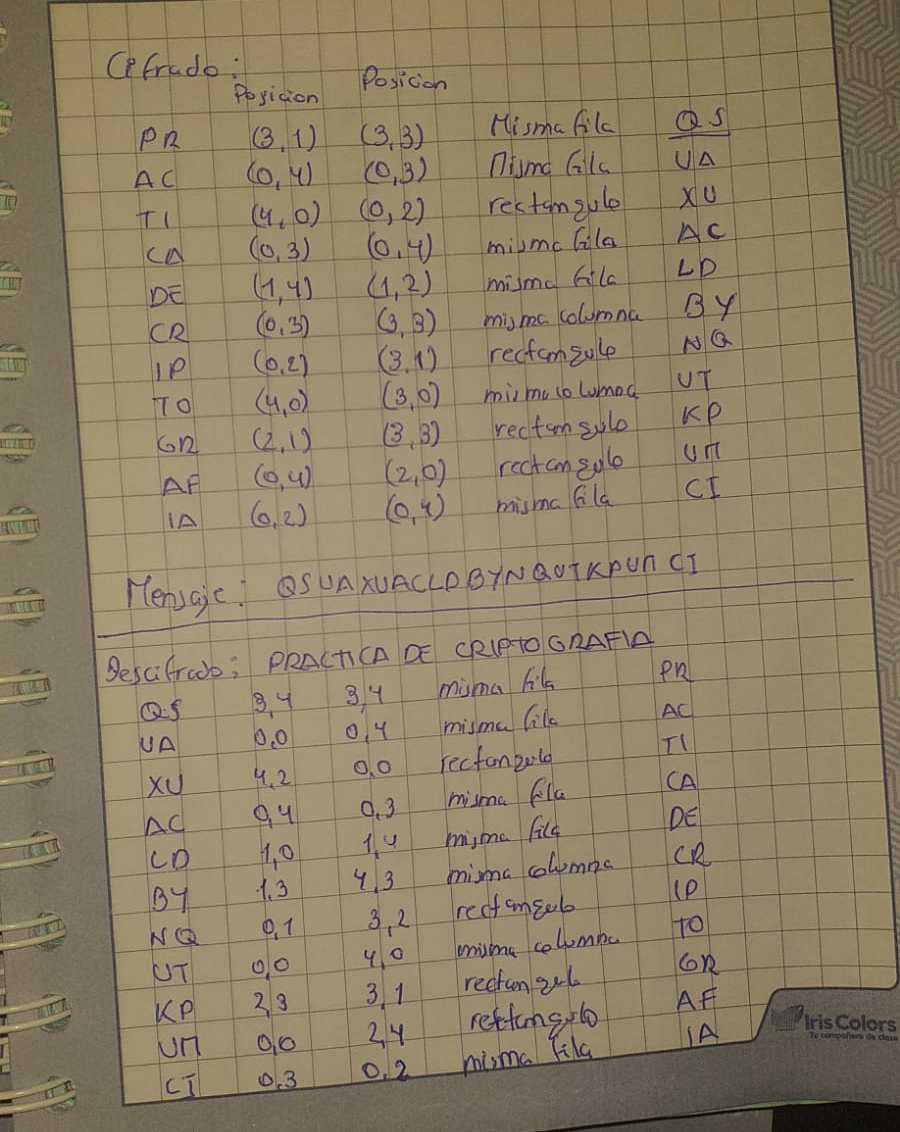 Cifrado:
Posicion Posicion
PR (3,1) (3,3) Misma fila QS
AC (0,4) (0,3) Misma fila UA
TI (4,0) (0,2) rectangulo XU
CA (0,3) (0,4) misma fila AC
DE (1,4) (1,2) misma fila LD
CR (0,3) (3,3) misma columna BY
IP (0,2) (3,1) rectangulo NQ
TO (4,0) (3,0) misma columna UT
GR (2,1) (3,3) rectangulo KP
AF (0,4) (2,0) rectangulo UM
IA (0,2) (0,4) misma fila CI
Mensaje: QSUAXUACLDBYNQUTKPUMCI
Descifrado: PRACTICA DE CRIPTOGRAFIA
QS 3,4 3,4 misma fila PR
UA 0,0 0,4 misma fila AC
XU 4,2 0,0 rectangulo TI
AC 0,4 0,3 misma fila CA
LD 1,0 1,4 misma fila DE
BY 1,3 4,3 misma columna CR
NQ 0,1 3,2 rectangulo IP
UT 0,0 4,0 misma columna TO
KP 2,3 3,1 rectangulo GR
UM 0,0 2,4 rectangulo AF
CI 0,3 0,2 misma fila IA
IrisColors
Tu compañero de clase